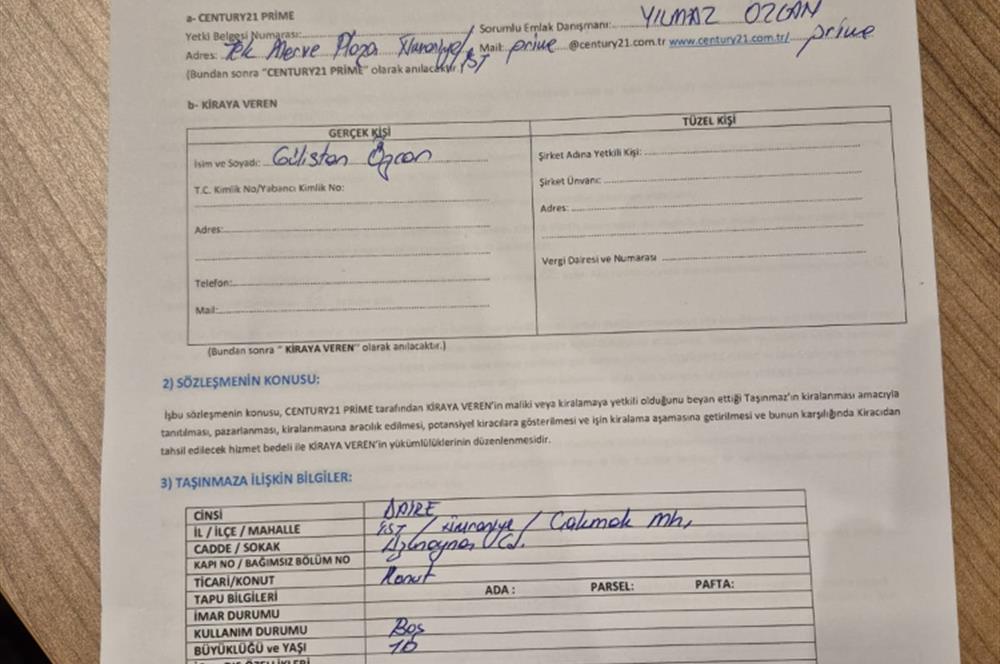 a- CENTURY21 PRIME
Yetki Belgesi Numarası: Sorumlu Emlak Danışmanı: YILMAZ ÖZCAN
Adres: Tek Merve Plaza Ümraniye/İST Mail: prime @century21.com.tr www.century21.com.tr/ prime
(Bundan sonra "CENTURY21 PRIME" olarak anılacaktır.)
b- KİRAYA VEREN
GERÇEK KİŞİ TÜZEL KİŞİ
İsim ve Soyadı: Gülistan Özcan Şirket Adına Yetkili Kişi:
T.C. Kimlik No/Yabancı Kimlik No: Şirket Ünvanı:
Adres: Adres:
Vergi Dairesi ve Numarası
Telefon:
Mail:
(Bundan sonra " KİRAYA VEREN" olarak anılacaktır.)
2) SÖZLEŞMENİN KONUSU:
İşbu sözleşmenin konusu, CENTURY21 PRIME tarafından KİRAYA VEREN'in maliki veya kiralamaya yetkili olduğunu beyan ettiği Taşınmaz'ın kiralanması amacıyla
tanıtılması, pazarlanması, kiralanmasına aracılık edilmesi, potansiyel kiracılara gösterilmesi ve işin kiralama aşamasına getirilmesi ve bunun karşılığında Kiracıdan
tahsil edilecek hizmet bedeli ile KİRAYA VEREN'in yükümlülüklerinin düzenlenmesidir.
3) TAŞINMAZA İLİŞKİN BİLGİLER:
CİNSİ DAİRE
İL / İLÇE / MAHALLE İST / Ümraniye / Çakmak mh,
CADDE / SOKAK Cd.
KAPI NO / BAĞIMSIZ BÖLÜM NO
TİCARİ/KONUT Konut
TAPU BİLGİLERİ ADA : PARSEL: PAFTA:
İMAR DURUMU
KULLANIM DURUMU Boş
BÜYÜKLÜĞÜ ve YAŞI